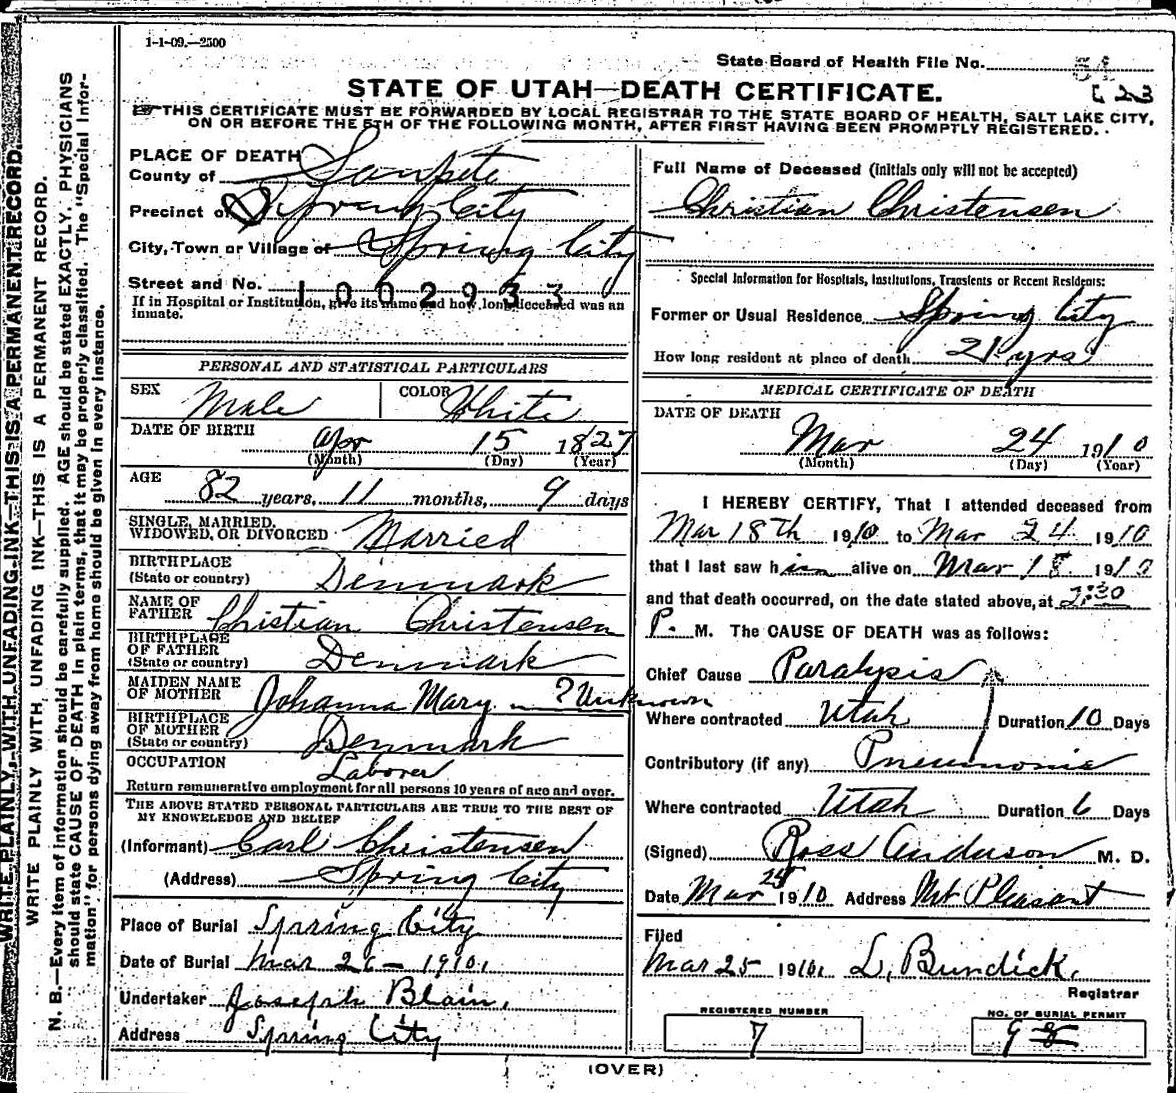 1-1-09.—2500
State Board of Health File No.
STATE OF UTAH—DEATH CERTIFICATE.
☞THIS CERTIFICATE MUST BE FORWARDED BY LOCAL REGISTRAR TO THE STATE BOARD OF HEALTH, SALT LAKE CITY,
ON OR BEFORE THE 5TH OF THE FOLLOWING MONTH, AFTER FIRST HAVING BEEN PROMPTLY REGISTERED.
PLACE OF DEATH
County of Sanpete
Precinct of Spring City
City, Town or Village of Spring City
Street and No. 1002933
If in Hospital or Institution, give its name and how long deceased was an
inmate.
PERSONAL AND STATISTICAL PARTICULARS
SEX Male COLOR White
DATE OF BIRTH Apr 15 1827
(Month) (Day) (Year)
AGE
82 years, 11 months, 9 days
SINGLE, MARRIED,
WIDOWED, OR DIVORCED Married
BIRTHPLACE
(State or country) Denmark
NAME OF
FATHER Christian Christensen
BIRTHPLACE
OF FATHER
(State or country) Denmark
MAIDEN NAME
OF MOTHER Johanna Mary ? Unknown
BIRTHPLACE
OF MOTHER
(State or country) Denmark
OCCUPATION Laborer
Return remunerative employment for all persons 10 years of age and over.
THE ABOVE STATED PERSONAL PARTICULARS ARE TRUE TO THE BEST OF
MY KNOWLEDGE AND BELIEF
(Informant) Carl Christensen
(Address) Spring City
Place of Burial Spring City
Date of Burial Mar 26 - 1910.
Undertaker Joseph Blain,
Address Spring City
Full Name of Deceased (Initials only will not be accepted)
Christian Christensen
Special Information for Hospitals, Institutions, Transients or Recent Residents:
Former or Usual Residence Spring City
How long resident at place of death 21 yrs
MEDICAL CERTIFICATE OF DEATH
DATE OF DEATH
Mar 24 1910
(Month) (Day) (Year)
I HEREBY CERTIFY, That I attended deceased from
Mar 18th 1910 to Mar 24 1910
that I last saw him alive on Mar 18 1910
and that death occurred, on the date stated above, at 2:30
P. M. The CAUSE OF DEATH was as follows:
Chief Cause Paralysis
Where contracted Utah Duration 10 Days
Contributory (if any) Pneumonia
Where contracted Utah Duration 6 Days
(Signed) Ross Anderson M. D.
Date Mar 25 1910 Address Mt Pleasant
Filed
Mar 25 1910. L. Bundick.
Registrar
REGISTERED NUMBER
7
NO. OF BURIAL PERMIT
9
(OVER)
WRITE PLAINLY WITH UNFADING INK—THIS IS A PERMANENT RECORD.
WRITE PLAINLY WITH UNFADING INK—THIS IS A PERMANENT RECORD.
N. B.—Every item of information should be carefully supplied. AGE should be stated EXACTLY. PHYSICIANS
should state CAUSE OF DEATH in plain terms, that it may be properly classified. The "Special Infor-
mation" for persons dying away from home should be given in every instance.